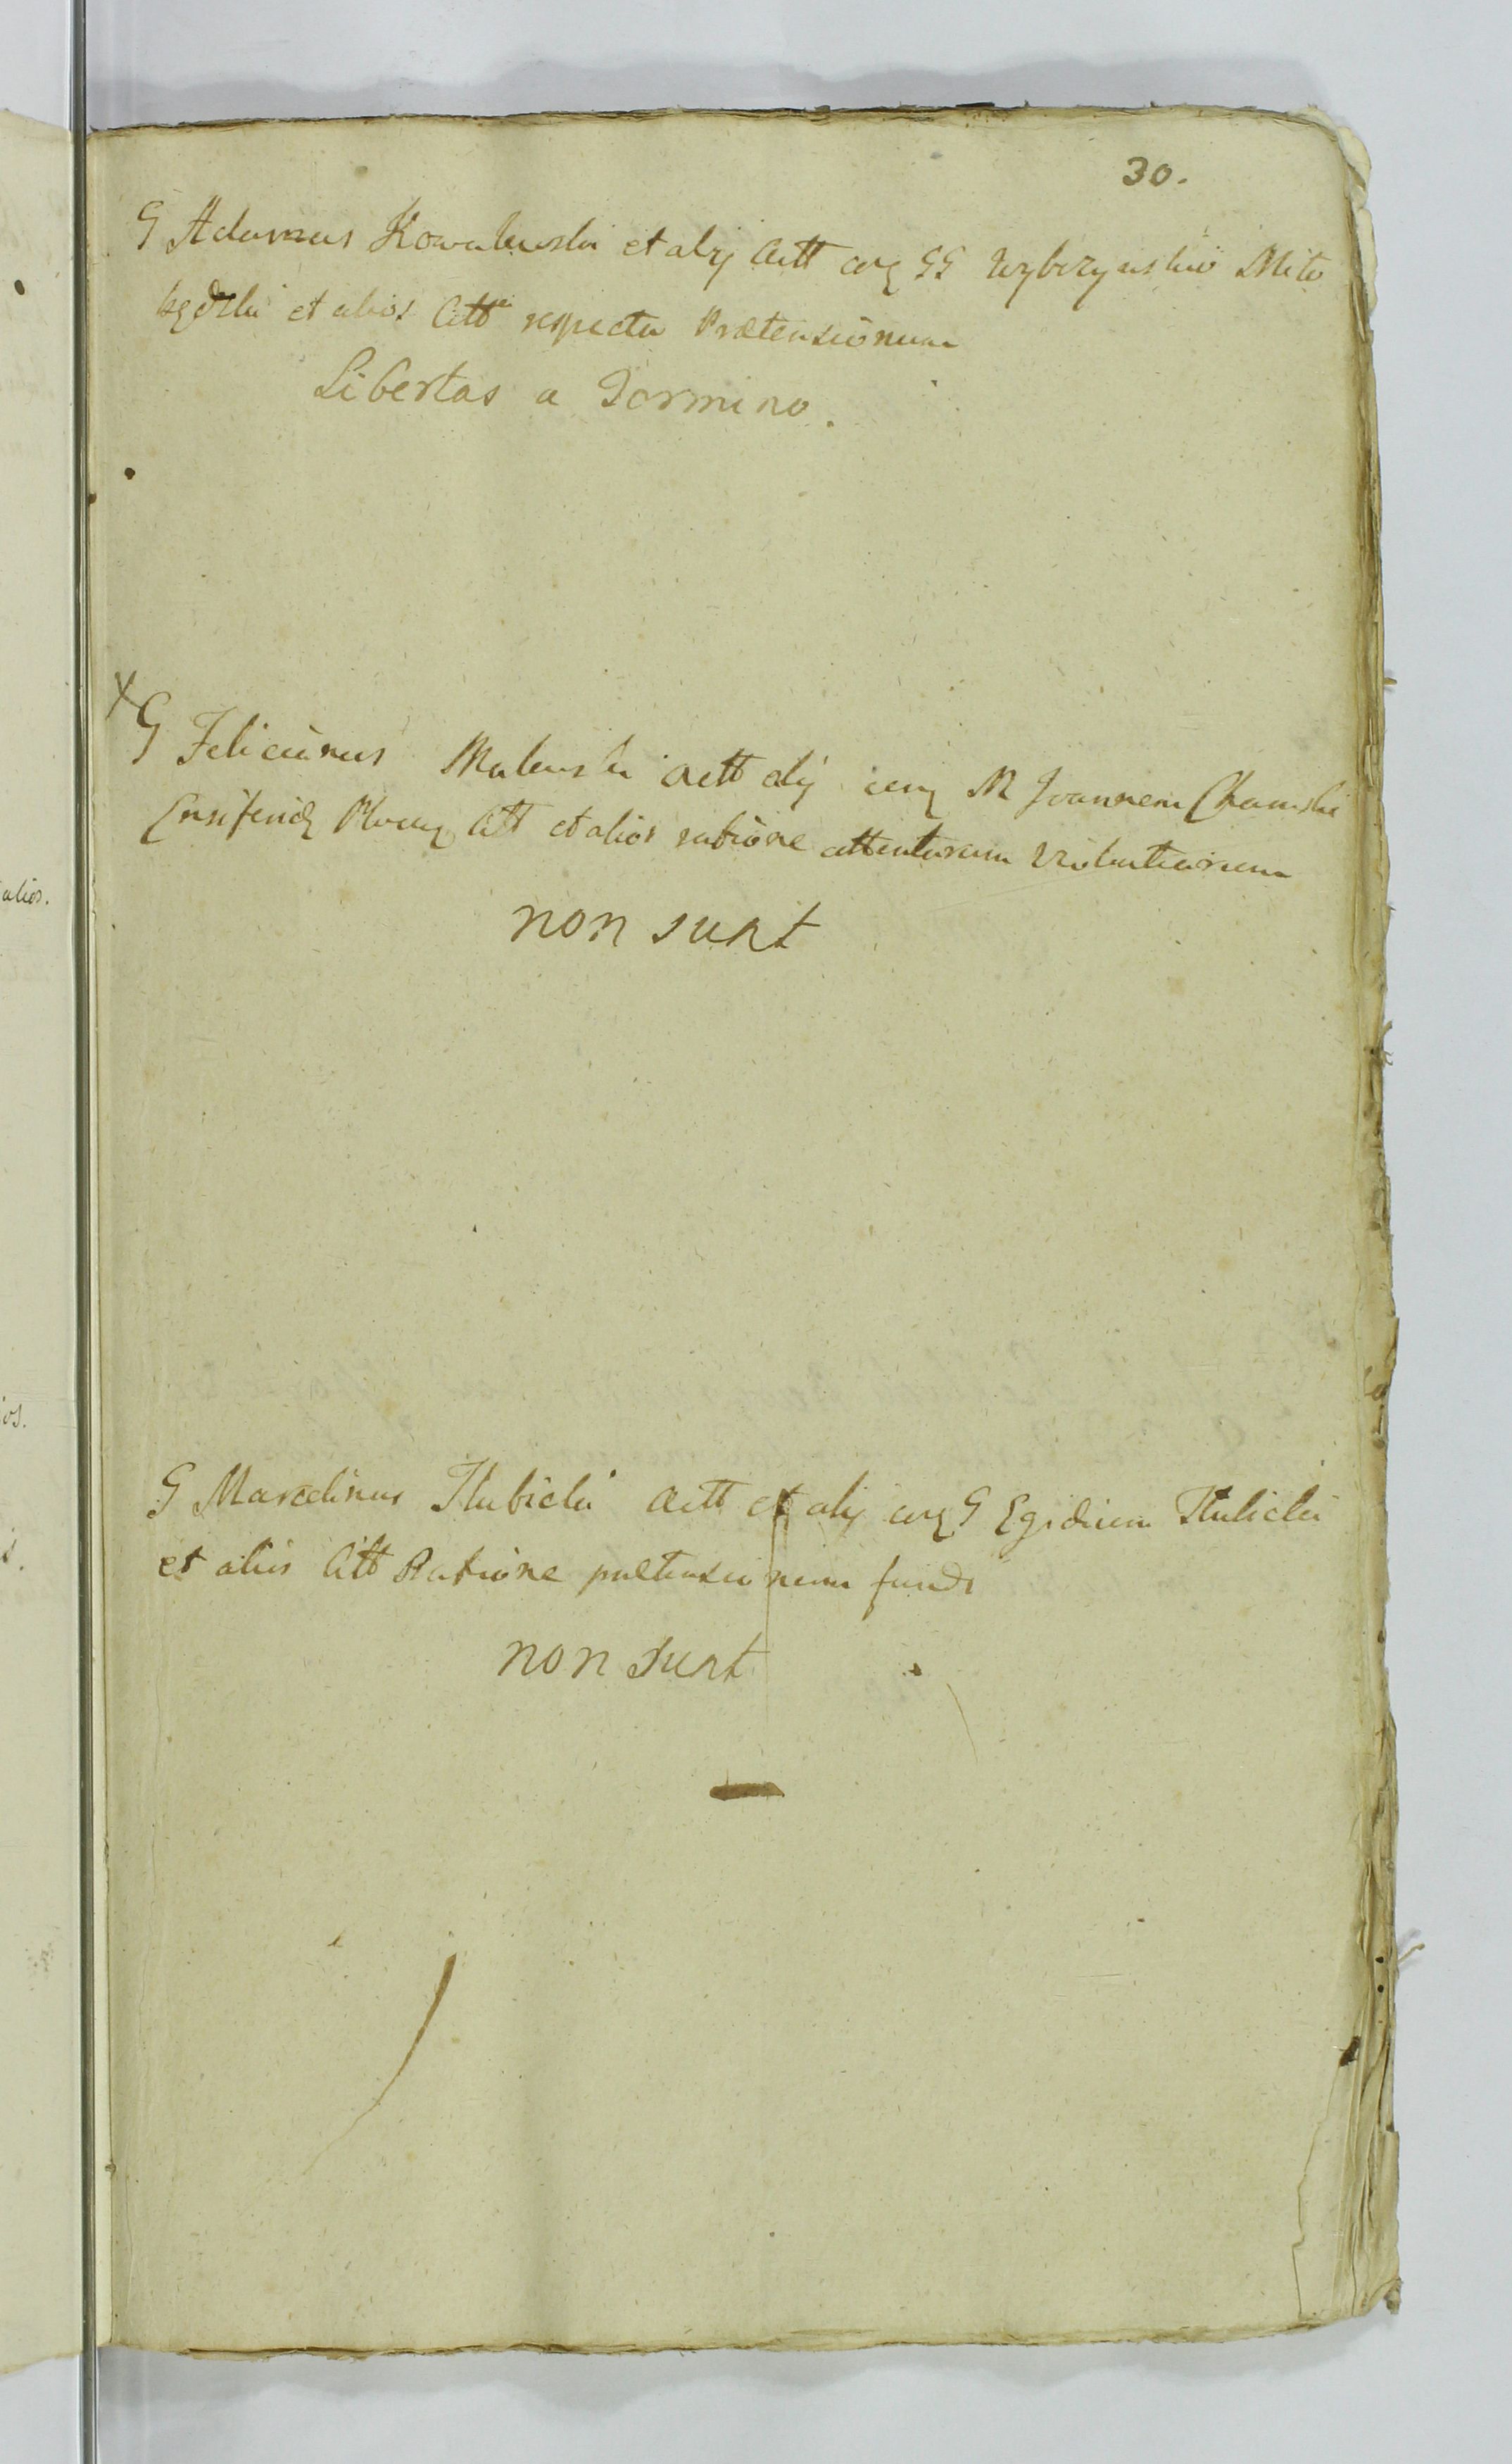 30.
G Adamus Kowalewski et alij Actt ceq GG Wybczynskie Mito
kędzki et alios Citt respectu Prætensionum
Libertas a Termino.
G Felicianus Malewski Actt alij ceq M Joannem Chamski
Ensiferū Plocen Citt et alios ratione attentarum Violentiarum
non sunt
G Marcelinus Slubicki Actt et alij ceq G Egidium Slubicki
et alios Citt Ratione pretensionum fundi
non sunt
alios.